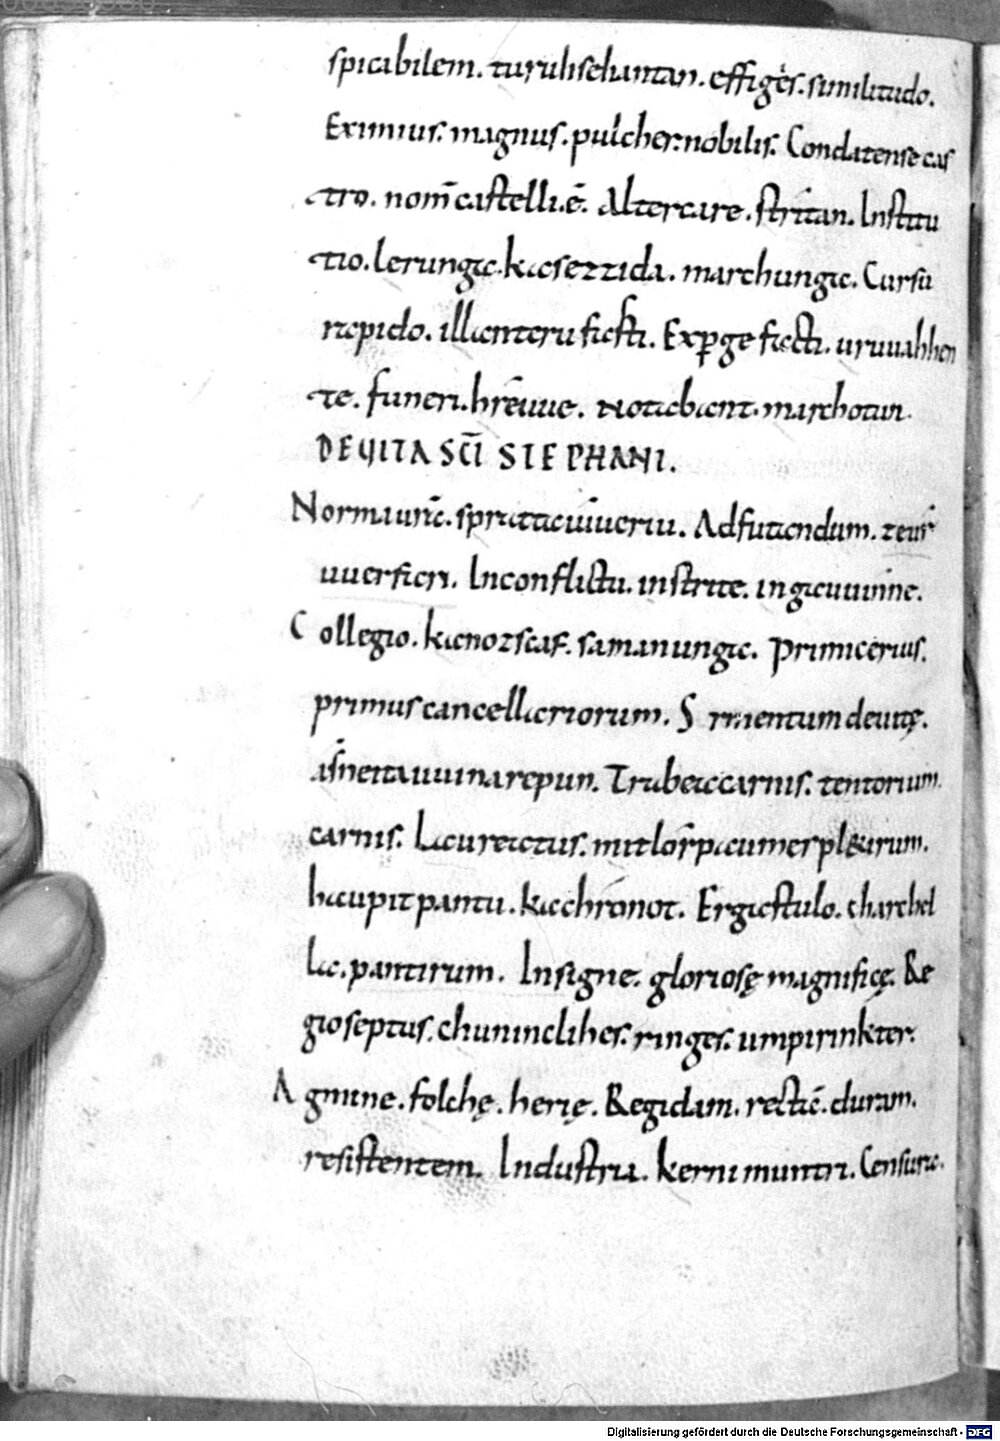 spicabilem. turuhsehuntan. effigies. similitudo.
Eximius. magnus. pulcher. nobilis. Condatense cas
tro. nom̄ castelli. ē. Altercare. stritan. Institu
tio. lerunga. kasezzida. marchunga. Cursu
rapido. illanteru ferti. Expge facti. uruuahhen
te. funeri. hreuue. Notabant. marchotun.
DE UITA SC̄I STEPHANI.
Norma uirtē. spratta Ad futiendum.
uuerfieri. In conflictu. in strite. in gauuinne.
Collegio. kanozscaf. samanunga. Primicerius.
primus cancellariorum. S r mentum de uite.
sneita uuinarepun. Trabea carnis. tentorium
carnis. Laureatus. mit lorpaumes pleturum.
haupit pantu. kachronot. Ergastulo. charchel
la. pantirum. Insigne. gloriosę magnificę. Re
gio septus. chuninclihes. ringes. umpirinkter.
Agmine. folchę. herię. Regidam. rectā. duram.
resistentem. Industria. kerni muntri. Censura.
Digitalisierung gefördert durch die Deutsche Forschungsgemeinschaft - DFG